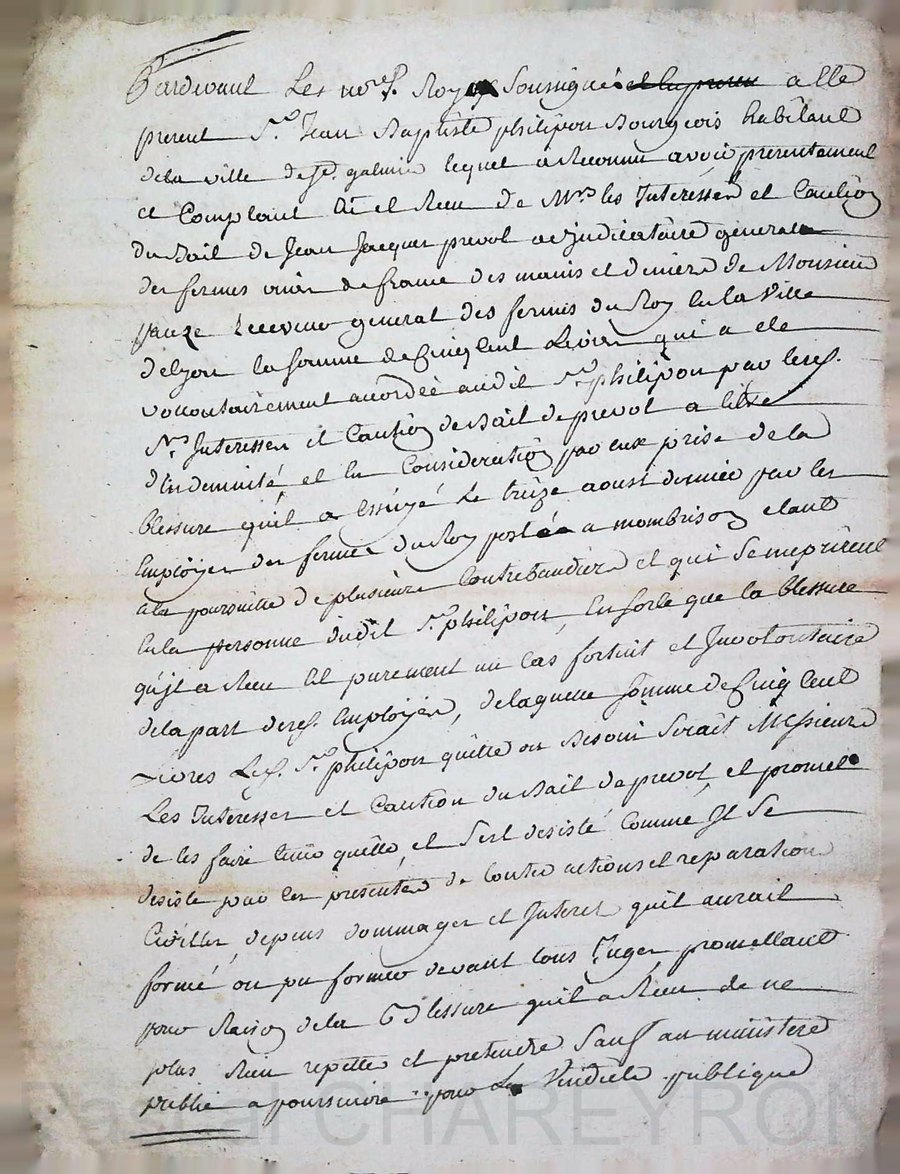 Pardevant Les no.res Royaux Soussignés et en presen a été
present S.r Jean Baptiste philipon Bourgeois habitant
de la ville de S.t galmier lequel a Reconnu avoir presentement
et Comptant été et Reçu de M.rs les Interessés et Caution
du Bail de Jean Jacques prevot adjudicataire general
des fermes unies de france des mains et deniers de Monsieur
pauze Receveur general des fermes du Roy en la Ville
de Lyon la somme de Cinq Cent Livres qui a eté
vollontairement accordée audit S.r philipon par lesd.
S.rs Interessés et Caution du Bail de prevot a titre
d'indemnité, et en Consideration par eux prise de la
blessure qu'il a essuyé Le treize aoust dernier par les
Employés des fermes du Roy postés a mombrison etant
a la poursuitte de plusieurs Contrebandiers et qui se meprirent
en la personne dudit S.r philipon, En sorte que la blessure
qu'il a Reçu est purement un cas fortuit et Involontaire
de la part desd. Employés, de laquelle somme de Cinq Cent
Livres Led. S.r philipon quitte ou Besoin serait Messieurs
Les Interessés et Caution du Bail de prevot, et promet
de les faire tenir quitte, et s'est desisté Comme Il se
desiste par les presentes de toutes actions et reparations
Civilles, depens dommages et Interet qu'il aurait
formé ou pu former devant tous Juges promettant
pour Raison de la Blessure qu'il a Reçu de ne
plus Rien repetter et pretendre sauf au ministere
public a poursuivre pour La Vindicte publique
Pascal CHAREYRON